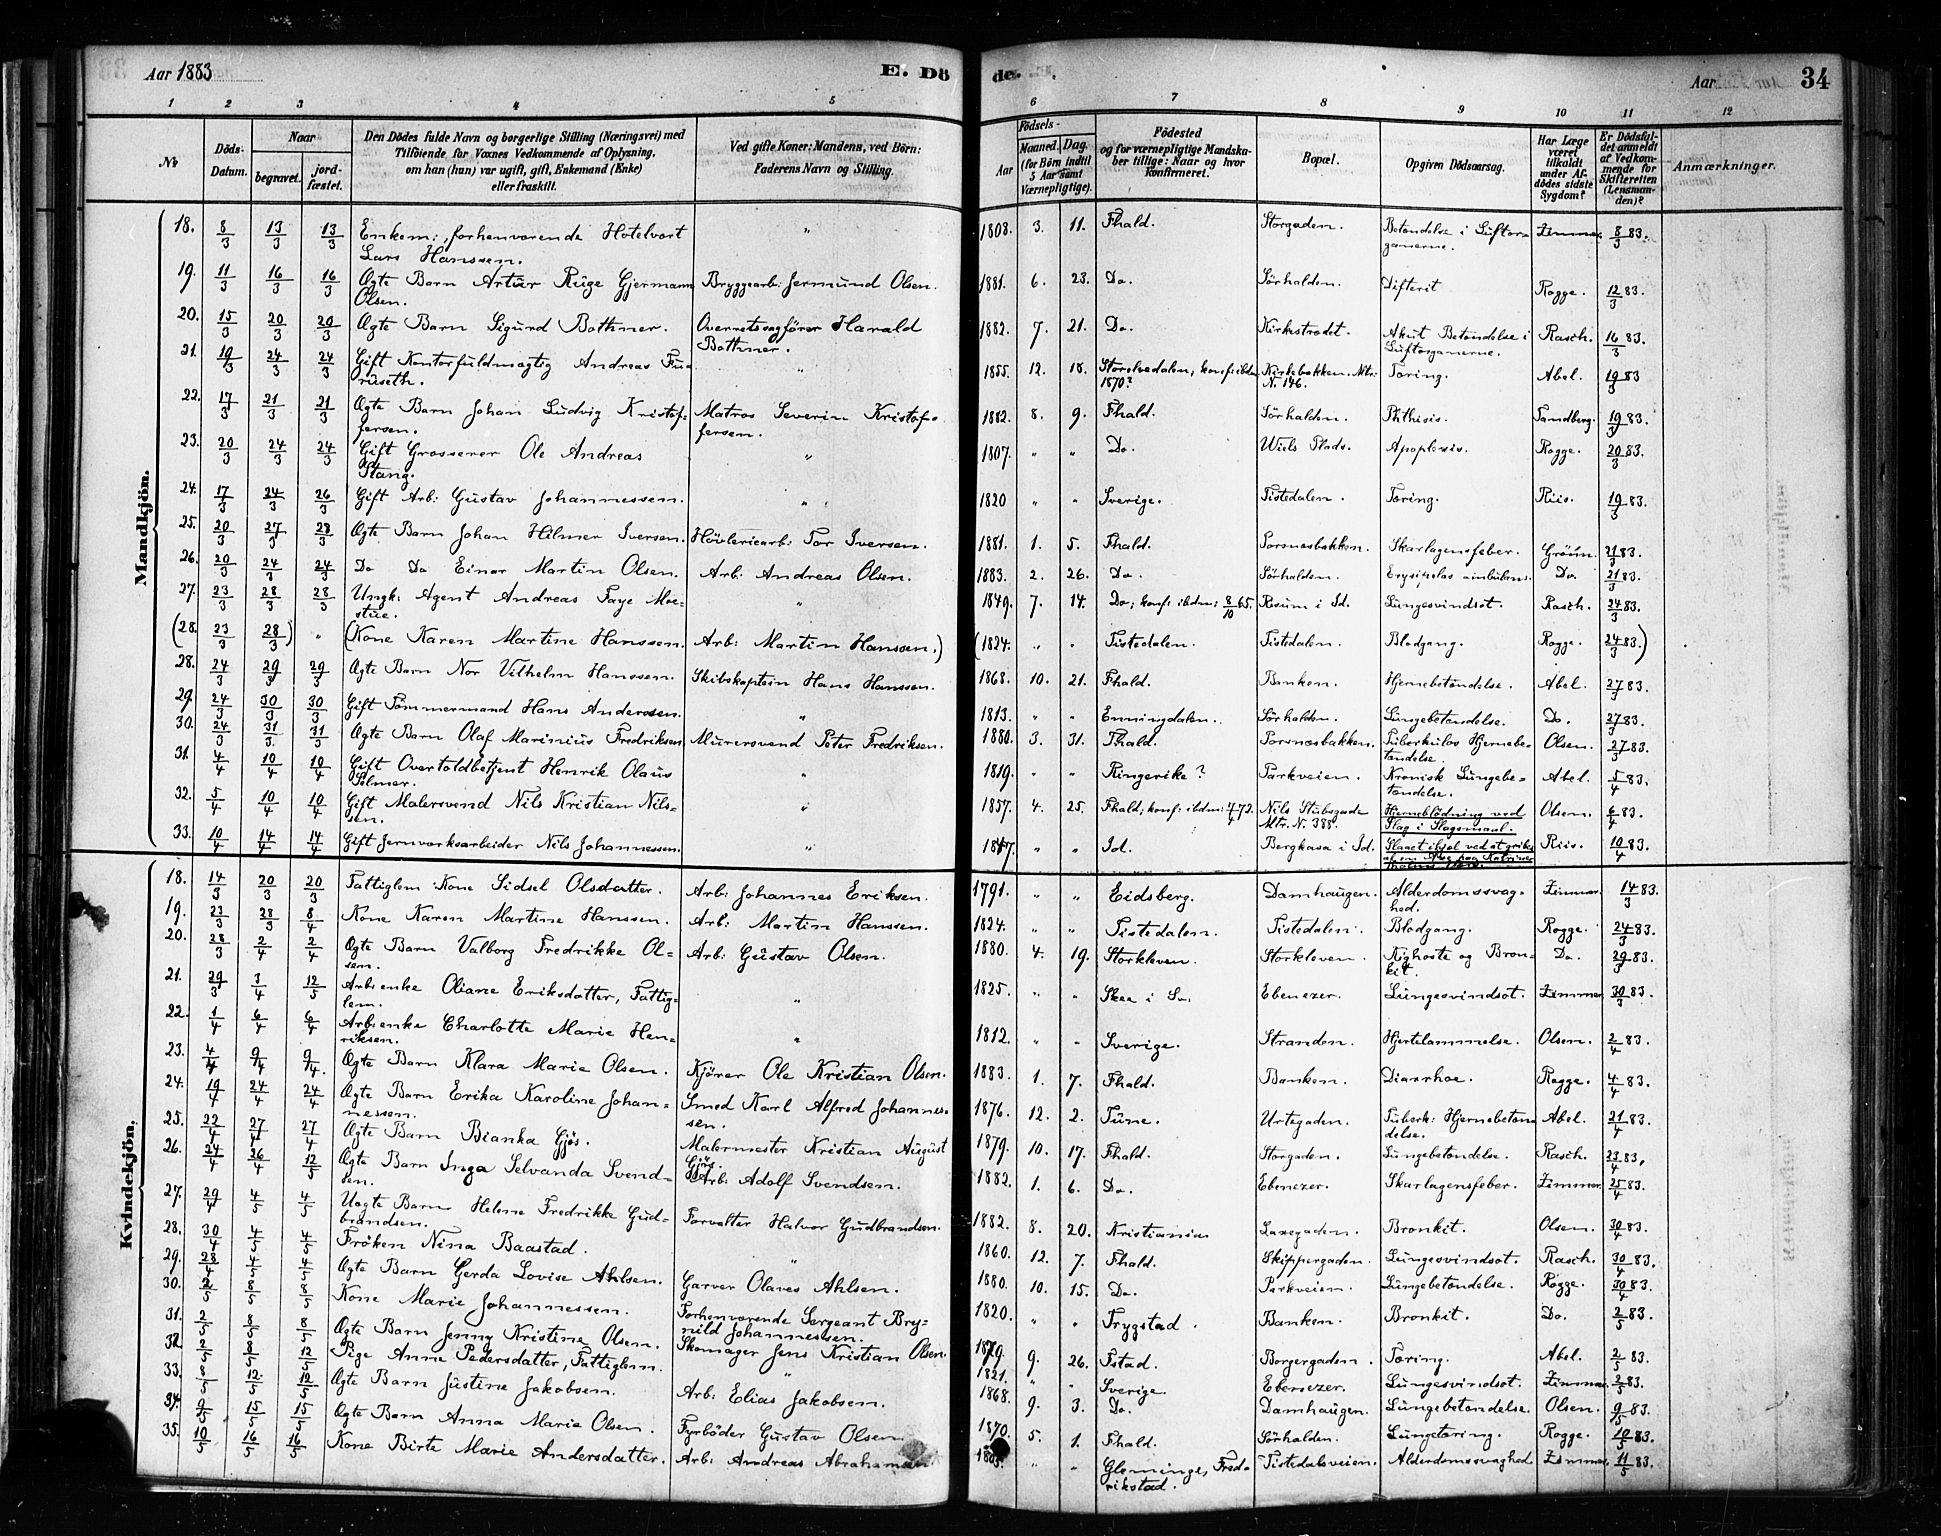 Aar 1883
E. Dö
de.
Aar
34
1 2 3 4 5 6 7 8 9 10 11 12
No
Döds-Datum.
Naar
begravet.
jord-fæstet.
Den Dödes fulde Navn og borgerlige Stilling (Næringsvei) med
Tilföiende for Voxnes Vedkommende af Oplysning,
om han (hun) var ugift, gift, Enkemand (Enke)
eller fraskilt.
Ved gifte Koner: Mandens, ved Börn:
Faderens Navn og Stilling.
Födsels-
Aar
Maaned.
Dag.
(for Börn indtil
5 Aar samt
Værnepligtige).
Födested
og for værnepligtige Mandska-
ber tillige: Naar og hvor
Konfirmeret.
Bopæl.
Opgiven Dödsaarsag.
Har Læge
været
tilkaldt
under Af-
dödes sidste
Sygdom?
Er Dödsfal-
det anmeldt
af Vedkom-
mende for
Skifteretten
(Lensman-
den)?
Anmærkninger.
Mandkjön.
18. 8/3 13/3 13/3 Enkem:, forhenværende Hotelvært Lars Hanssen. " 1808. 3. 11. Fhald. Storgaden. Betændelse i Luftorganerne. Zimmer. 8/3 83.
19. 11/3 16/3 16/3 Ægte Barn Artur Ruge Gjermann Olsen. Bryggearb: Jermund Olsen. 1881. 6. 23. Do. Sörhalden. Difterit Rogge. 12/3 83.
20. 15/3 20/3 20/3 Ægte Barn Sigurd Bothner. Overretssagförer Harald Bothner. 1882. 7. 21. Do. Kirkestrædet. Akut Betændelse i Luftorganerne. Rasch. 16/3 83.
21. 19/3 24/3 24/3 Gift Kontorfuldmægtig Andreas Furuseth. " 1855. 12. 18. Storelvedalen, konf: ibdm 1870? Kirkebakken. Mtr: N. 146. Tæring. Abel. 19/3 83
22. 17/3 21/3 21/3 Ægte Barn Johan Ludvig Kristoffersen. Matros Severin Kristoffersen. 1882. 8. 9. Fhald. Sörhalden. Phthisis. Sandberg. 19/3 83.
23. 20/3 24/3 24/3 Gift Grosserer Ole Andreas Stang. " 1807. " " Do. Wiels Plads. Apoplexis. Rogge. 20/3 83.
24. 17/3 24/3 26/3 Gift Arb: Gustav Johannessen. " 1820 " " Sverige. Tistedalen. Tæring. Riis. 19/3 83.
25. 20/3 27/3 28/3 Ægte Barn Johan Hilmer Iversen. Hövleriearb: Tor Iversen. 1881. 1. 5. Fhald. Porsnæsbakken. Skarlagensfeber. Gröun. 21/3 83.
26. 20/3 24/3 24/3 Do Do Einar Martin Olsen. Arb: Andreas Olsen. 1883. 2. 26. Do. Sörhalden. Erysipelas ambulans. Do. 21/3 83.
27. 23/3 28/3 28/3 Ungk: Agent Andreas Faye Moestue. " 1849. 7. 14. Do; konf: ibdm: 8/10 65. Rosum i Id. Lungesvindsot. Rasch. 24/3 83.
(28. 23/3 28/3) " (Kone Karen Martine Hanssen. Arb: Martin Hanssen.) (1824. " " Tistedalen. Tistedalen. Blodgang. Rogge. 24/3 83)
28. 24/3 29/3 29/3 Ægte Barn Nor Vilhelm Hanssen. Skibskaptein Hans Hanssen. 1868. 10. 21. Fhald. Banken. Hjernebetændelse. Abel. 27/3 83.
29. 24/3 30/3 30/3 Gift Tømmermand Hans Anderssen. " 1813. " " Enningdalen. Sörhalden. Lungebetændelse. Do. 27/3 83.
30. 24/3 31/3 31/3 Ægte Barn Olaf Marinius Fredriksen Murersvend Peter Fredriksen. 1880. 3. 31. Fhald. Porsnæsbakken. Tuberkuløs Hjernebetændelse. Olsen. 27/3 83.
31. 4/4 10/4 10/4 Gift Overtoldbetjent Henrik Olaus Selmer. " 1819. " " Ringerike? Parkveien. Kronisk Lungebetændelse. Abel. 5/4 83.
32. 5/4 10/4 10/4 Gift Malersvend Nils Kristian Nilssen. " 1857. 4. 25. Fhald; konf: ibdm: 7/4 72. Nils Stubsgade Mtr. N. 388. Hjerneblödning ved Slag i Slagsmaal. Olsen. 6/4 83.
33. 10/4 14/4 14/4 Gift Jernværksarbeider Nils Johannessen. " 1847. " " Id. Bergkasa i Id. Slaaet ihjel ved at gribes Riis. 10/4 83.
Kvindekjön.
18. 14/3 20/3 20/3 Fattiglem Kone Sidsel Olsdatter. Arb: Johannes Eriksen. 1791. " " Eidsberg. Damhaugen. Alderdomssvaghed. Zimmer. 14/3 83.
19. 23/3 28/3 8/4 Kone Karen Martine Hanssen. Arb: Martin Hanssen. 1824. " " Tistedalen. Tistedalen. Blodgang. Rogge. 24/3 83.
20. 28/3 2/4 2/4 Ægte Barn Valborg Fredrikke Olsen. Arb: Gustav Olsen. 1880. 4. 19. Storkleven. Storkleven. Kighoste og Bronkit. Do. 29/3 83.
21. 29/3 3/4 12/5 Arb:enke Oliane Eriksdatter, Fattiglem. " 1825. " " Skee i Sv. Ebenezer. Lungesvindsot. Zimmer. 30/3 83.
22. 1/4 6/4 6/4 Arb:enke Charlotte Marie Henriksen. " 1812. " " Sverige. Stranden. Hjertelammelse. Olsen. 2/4 83.
23. 4/4 9/4 9/4. Ægte Barn Klara Marie Olsen. Kjörer Ole Kristian Olsen. 1883. 1. 7. Fhald. Banken. Diarrhoe. Rogge. 4/4 83.
24. 19/4 24/4 24/4 Ægte Barn Erika Karoline Johannessen. Smed Karl Alfred Johannessen. 1876. 12. 2. Tune. Urtegaden. Tuberk: Hjernebetændelse. Abel. 21/4 83.
25. 22/4 27/4 27/4 Ægte Barn Bianka Gjøs. Malermester Kristian August Gjøs. 1879. 10. 17. Fhald. Storgaden. Lungebetændelse. Rasch. 23/4 83.
26. 24/4 26/4 12/5 Ægte Barn Inga Selvanda Svendsen. Arb: Adolf Svendsen. 1882. 1. 6. Do. Ebenezer. Skarlagensfeber. Zimmer. 25/4 83.
27. 29/4 4/5 4/5 Uægte Barn Helene Fredrikke Gudbrandsen. Forvalter Halvor Gudbrandsen. 1882. 8. 20. Kristiania Laxegaden. Bronkit. Olsen. 30/4 83.
28. 30/4 4/5 4/5 Fröken Nina Baastad. " 1860. 12. 7. Fhald. Skippergaden. Lungesvindsot. Rasch. 30/4 83.
29. 28/4 4/5 4/5 Ægte Barn Gerda Lovise Ahlsen. Garver Olaves Ahlsen. 1880. 10. 15. Do. Parkveien. Lungebetændelse. Rogge. 30/4 83.
30. 2/5 8/5 8/5 Kone Marie Johannessen. Forhenværende Sergeant Brynild Johannessen. 1820. " " Trygstad. Banken. Bronkit. Do. 2/5 83.
31. 2/5 8/5 8/5 Ægte Barn Jenny Kristine Olsen. Skomager Jens Kristian Olsen. 1879. 9. 26. Fstad. Borgergaden. Tæring. Abel. 2/5 83.
32. 2/5 8/5 12/5 Pige Anne Pedersdatter, Fattiglem. " 1821. " " Sverige Ebenezer. Lungesvindsot. Zimmer. 2/5 83.
33. 8/5 12/5 12/5 Ægte Barn Justine Jakobsen. Arb: Elias Jakobsen. 1868. 9. 3. Do. Damhaugen. Lungebetændelse. Olsen. 9/5 83.
34. 9/5 15/5 15/5 Ægte Barn Anna Marie Olsen. Fyrböder Gustav Olsen. 1870. 5. 1. Fhald. Sörhalden. Lungetæring. Rogge. 10/5 83.
35. 10/5 16/5 16/5 Kone Birte Marie Andersdatter. Arb: Andreas Abrahamsen " " Glemminge, Fredrikstad. Tistedalsveien. Alderdomssvaghed Zimmer. 11/5 83.